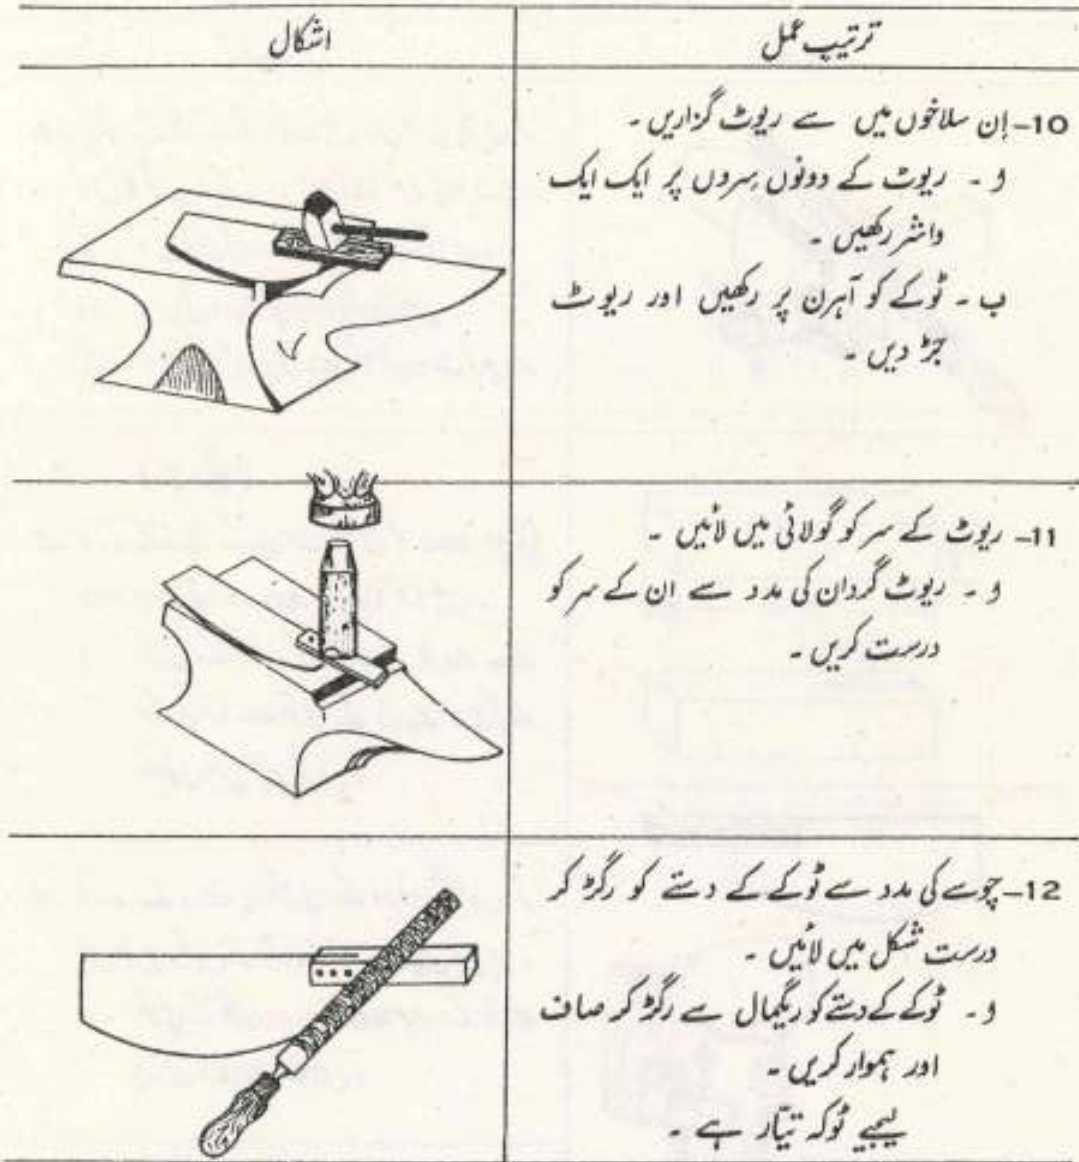 ترتیبِ عمل
اشکال
10- اِن سلاخوں میں سے ریوٹ گزاریں ۔
و ۔ ریوٹ کے دونوں سِروں پر ایک ایک
واشر رکھیں ۔
ب ۔ ٹوکے کو آہرن پر رکھیں اور ریوٹ
جَڑ دیں ۔
11- ریوٹ کے سر کو گولائی میں لائیں ۔
و ۔ ریوٹ گردان کی مدد سے ان کے سر کو
درست کریں ۔
12- چوسے کی مدد سے ٹوکے کے دستے کو رگڑ کر
درست شکل میں لائیں ۔
و ۔ ٹوکے کے دستے کو ریگمال سے رگڑ کر صاف
اور ہموار کریں ۔
لیجیے ٹوکہ تیّار ہے ۔